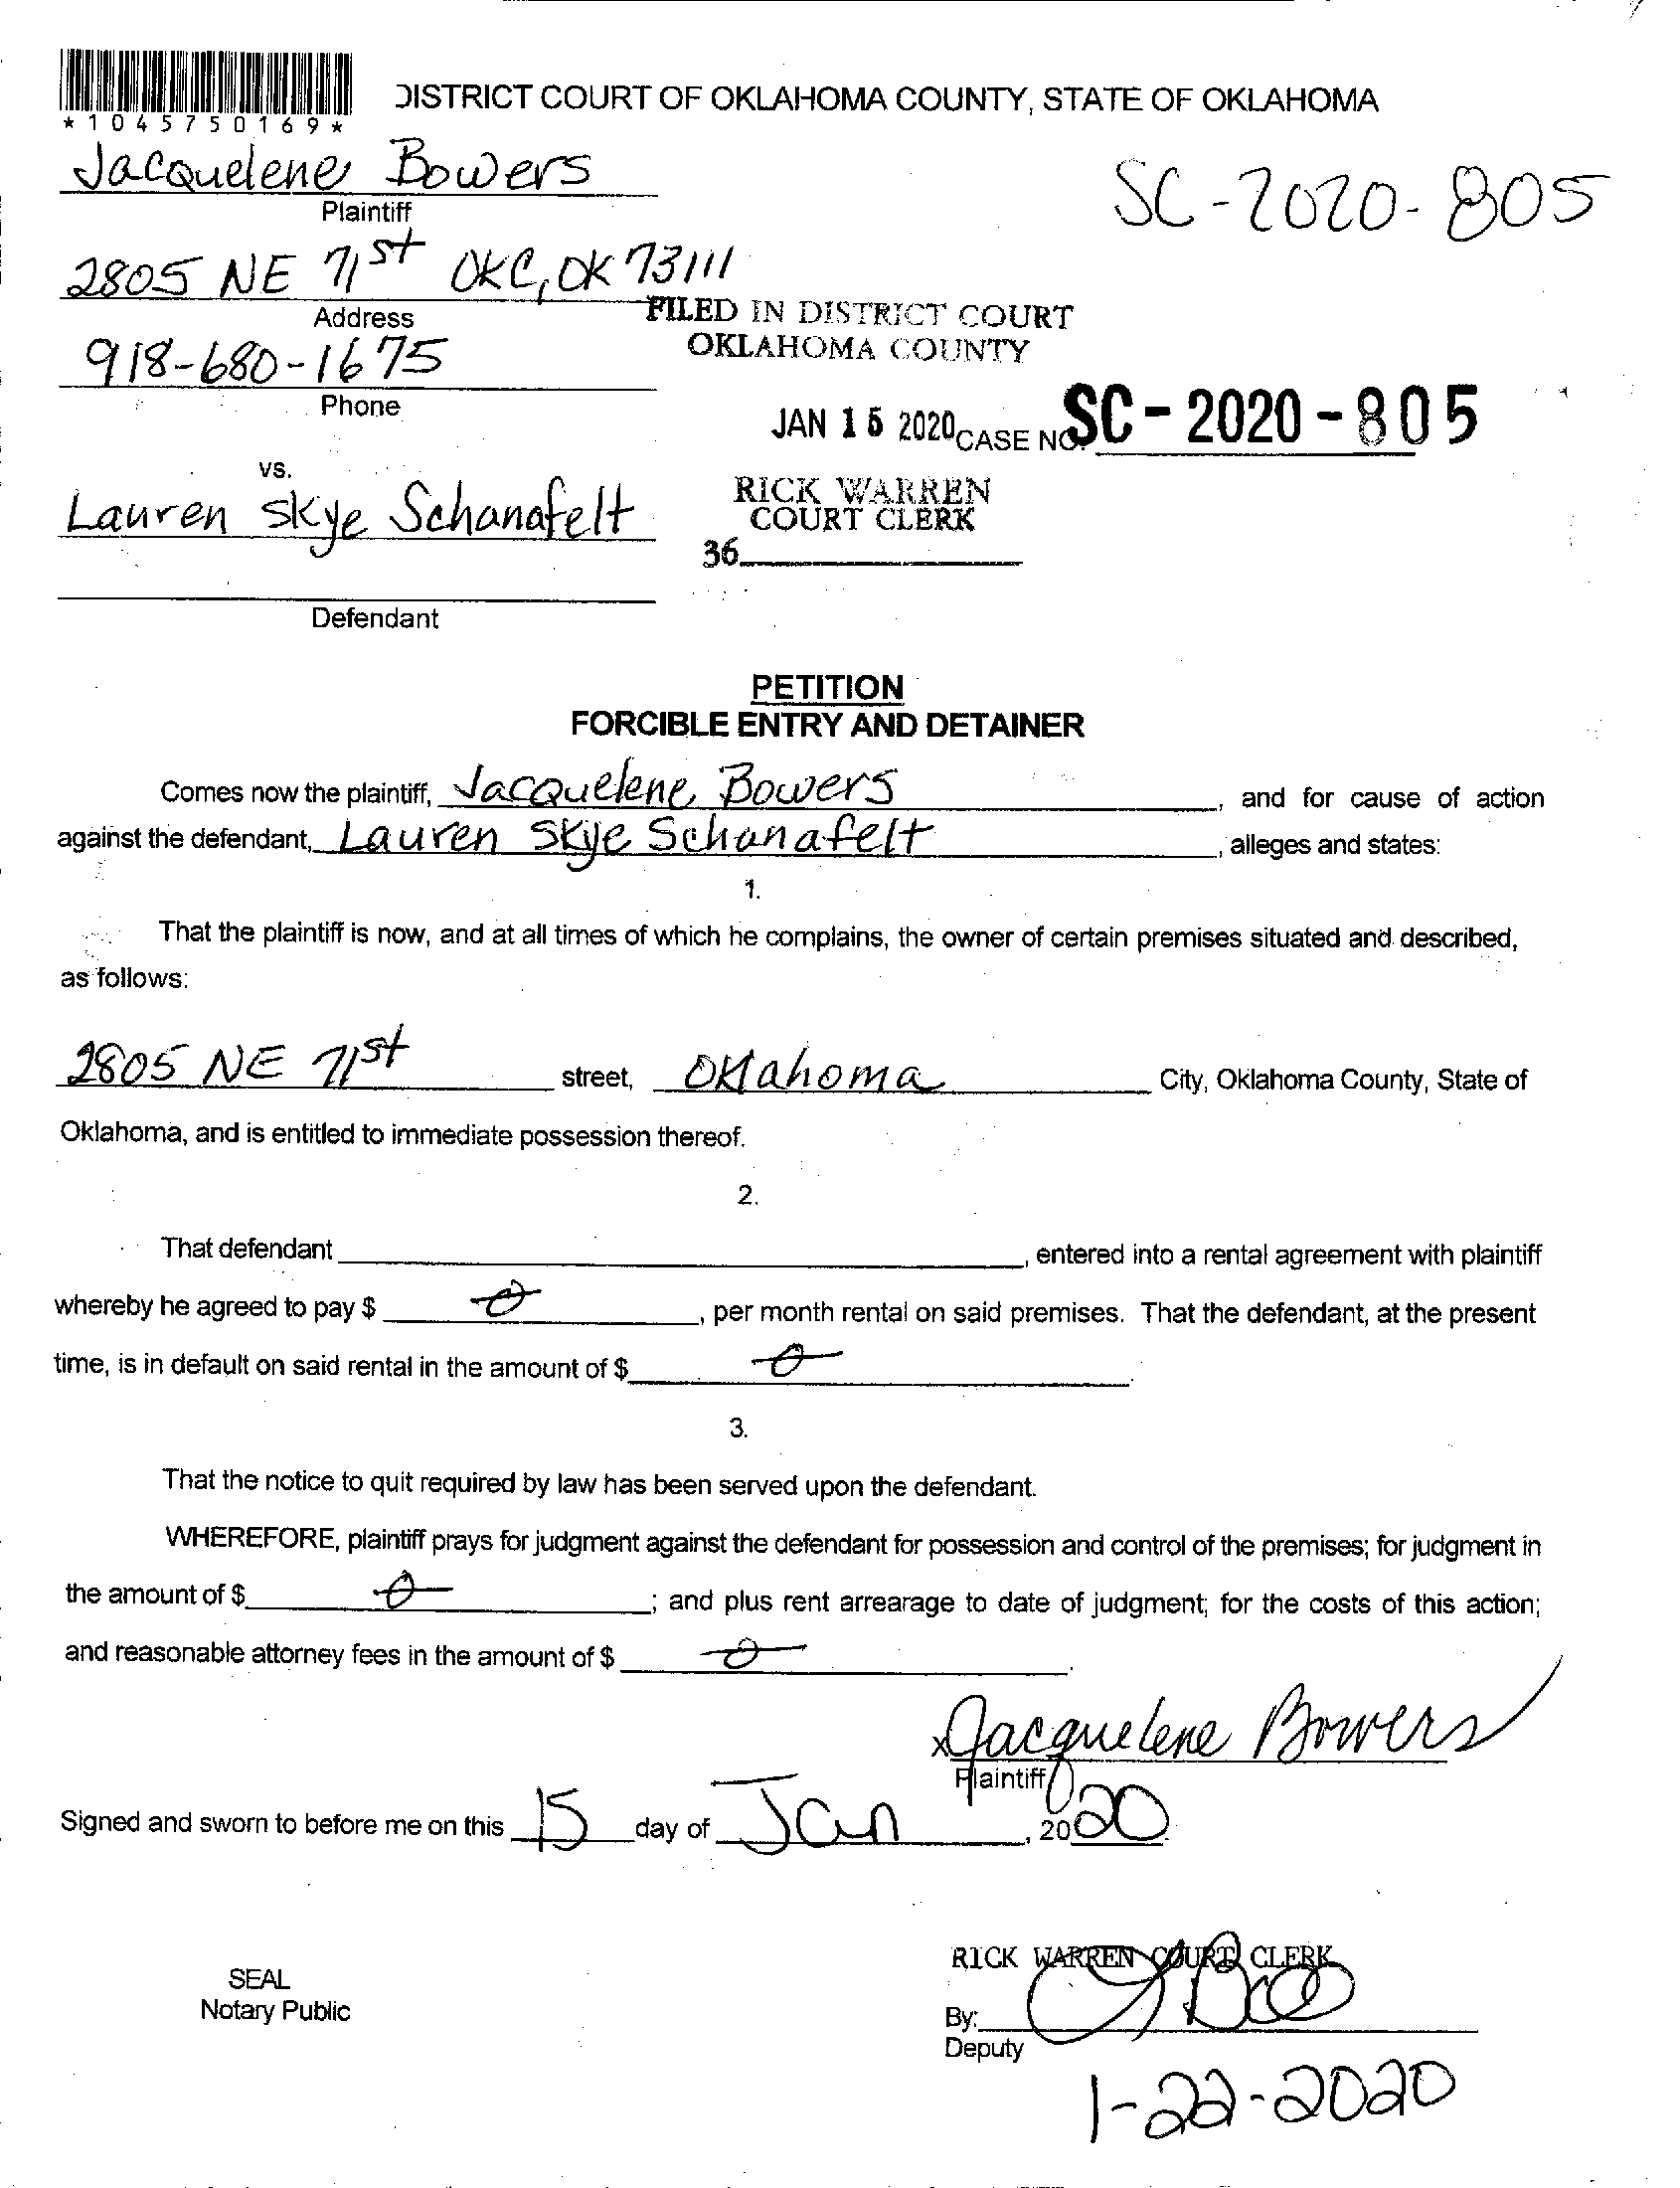 *1045750169*
DISTRICT COURT OF OKLAHOMA COUNTY, STATE OF OKLAHOMA
Jacquelene Bowers
Plaintiff
SC-2020-805
2805 NE 71st OKC, OK 73111
Address
FILED IN DISTRICT COURT
OKLAHOMA COUNTY
918-680-1675
Phone
JAN 15 2020 CASE NO. SC-2020-805
vs.
RICK WARREN
COURT CLERK
Lauren Skye Schanafelt
36
Defendant
PETITION
FORCIBLE ENTRY AND DETAINER
Comes now the plaintiff, Jacquelene Bowers, and for cause of action
against the defendant, Lauren Skye Schanafelt, alleges and states:
1.
That the plaintiff is now, and at all times of which he complains, the owner of certain premises situated and described,
as follows:
2805 NE 71st street, Oklahoma City, Oklahoma County, State of
Oklahoma, and is entitled to immediate possession thereof.
2.
That defendant , entered into a rental agreement with plaintiff
whereby he agreed to pay $ 0 , per month rental on said premises. That the defendant, at the present
time, is in default on said rental in the amount of $ 0 .
3.
That the notice to quit required by law has been served upon the defendant.
WHEREFORE, plaintiff prays for judgment against the defendant for possession and control of the premises; for judgment in
the amount of $ 0 ; and plus rent arrearage to date of judgment; for the costs of this action;
and reasonable attorney fees in the amount of $ 0 .
x Jacquelene Bowers
Plaintiff
Signed and sworn to before me on this 15 day of Jan, 2020.
RICK WARREN COURT CLERK
SEAL
Notary Public
By:
Deputy
1-22-2020